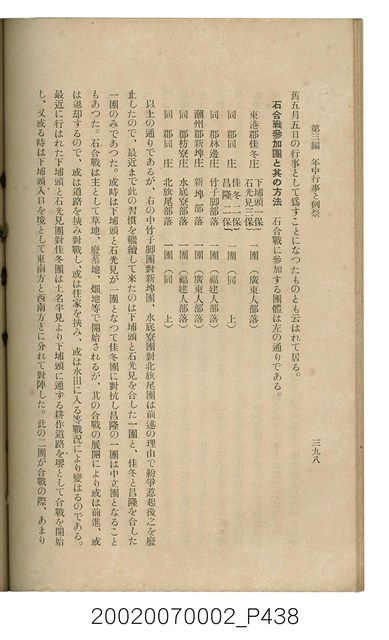 第三編 年中行事と例祭
三九八
舊五月五日の行事として爲すことになつたものとも云はれて居る。
石合戰參加團と其の方法 石合戰に參加する團體は左の通りである。
東港郡佳冬庄 下埔頭一保 石光見三保 一團(廣東人部落)
同 郡同 庄 佳冬一保 昌隆二保 一團(同 上)
同 郡林邊庄 竹子脚部落 一團(福建人部落)
潮州郡新埤庄 新埤部落 一團(廣東人部落)
同 郡枋寮庄 水底寮部落 一團(福建人部落)
同 郡同 庄 北旗尾部落 一團(同 上)
以上の通りであるが、右の中竹子脚團對新埤團、水底寮團對北旗尾團は前述の理由で紛爭惹起後之を廢
止したので、最近まで此の習慣を繼續して來たのは下埔頭と石光見を合した一團と、佳冬と昌隆を合した
一團のみであつた。或時は下埔頭と石光見が一團となつて佳冬團に對抗し昌隆の一團は中立團となること
もあつた。石合戰は主として草地、廢墓地、畑地等で開始されるが、其の合戰の展開により或は前進、或
は退却するので、或は道路を挾み對戰し、或は住家を挾み、或は水田に入る等戰況により變はるのである。
最近に行はれた下埔頭と石光見團對佳冬團は土名半見より下埔頭に通する耕作道路を堺として合戰を開始
し、又或る時は下埔頭入口を境として東南方と西南方とに分れて對陣した。此の二團が合戰の際、あまり
20020070002_P438